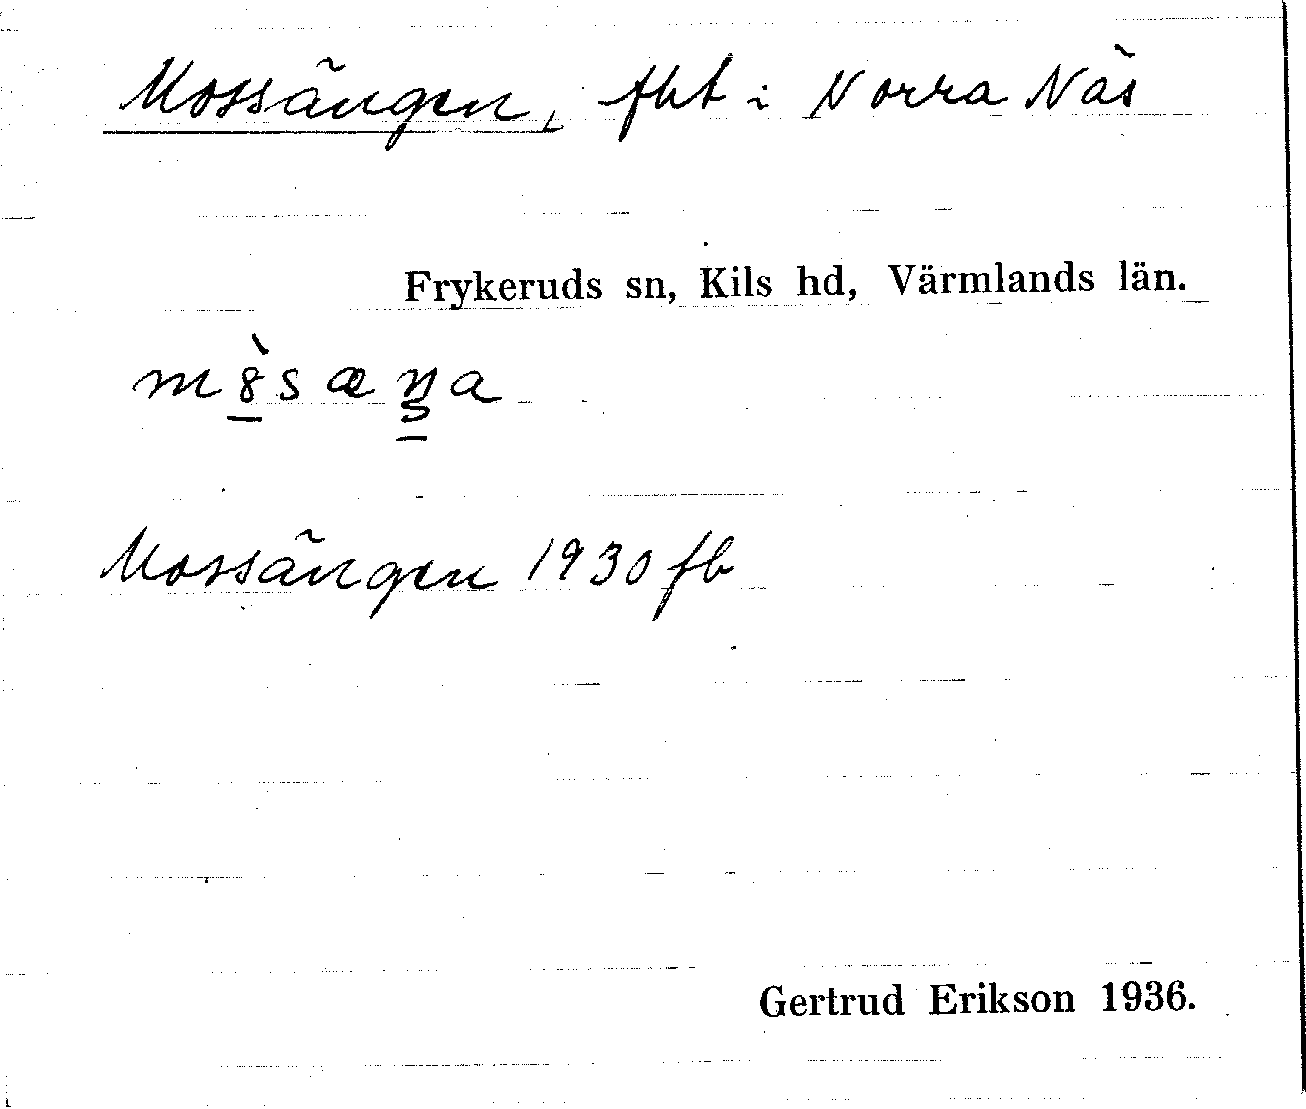 Mossängen, fht i Norra Näs
Frykeruds sn, Kils hd, Värmlands län.
Mossängen 1930 fb
Gertrud Erikson 1936.